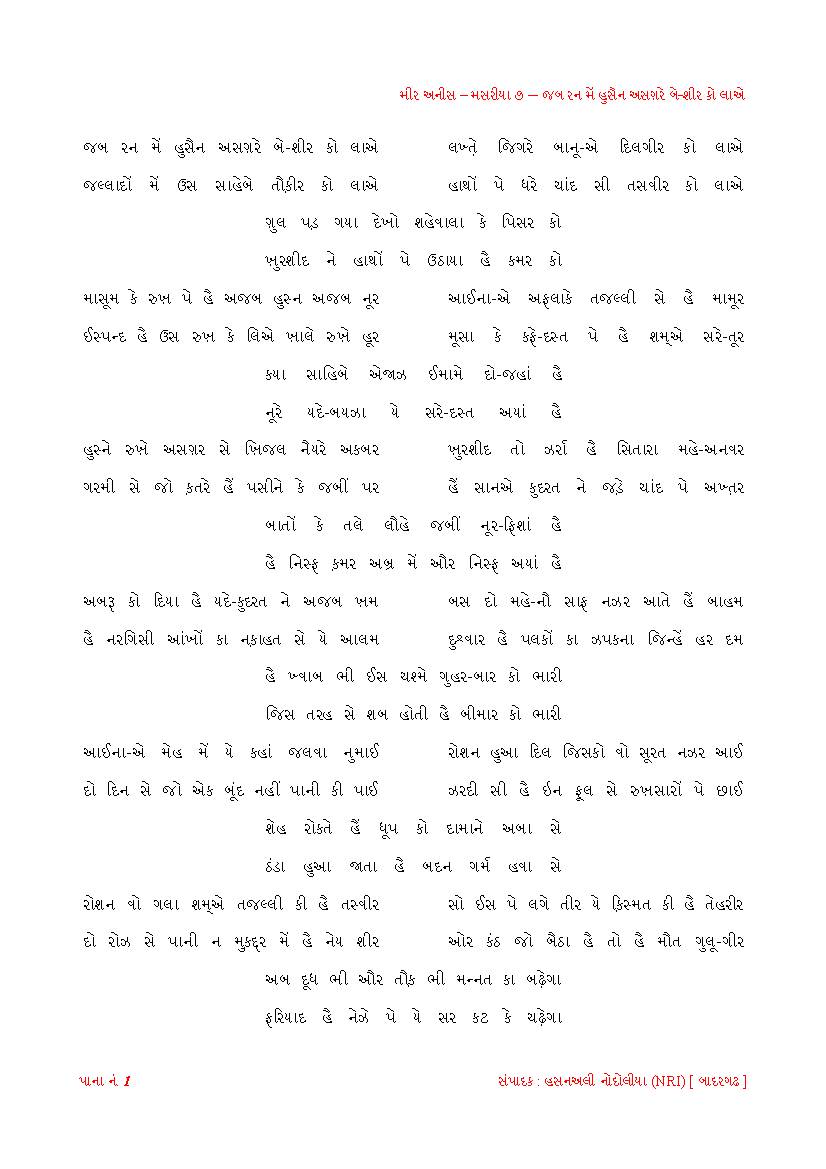 મીર અનીસ – મસરીયા ૭ – જબ રન મેં હુસૈન અસગ઼રે બે-શીર કો લાએ
જબ રન મેં હુસૈન અસગ઼રે બે-શીર કો લાએ લખ્તે જિગરે બાનૂ-એ દિલગીર કો લાએ
જલ્લાદોં મેં ઉસ સાહેબે તૌક઼ીર કો લાએ હાથોં પે ધરે ચાંદ સી તસવીર કો લાએ
ગ઼ુલ પડ઼ ગયા દેખો શહેવાલા કે પિસર કો
ખ઼ુરશીદ ને હાથોં પે ઉઠાયા હૈ ક઼મર કો
માસૂમ કે રુખ઼ પે હૈ અજબ હુસ્ન અજબ નૂર આઈના-એ અફ઼લાકે તજલ્લી સે હૈ મામૂર
ઈસ્પન્દ હૈ ઉસ રુખ઼ કે લિએ ખ઼ાલે રુખ઼ે હૂર મૂસા કે કફ઼ે-દસ્ત પે હૈ શમ્એ સરે-તૂર
ક્યા સાહિબે એજાઝ ઈમામે દો-જહાં હૈ
નૂરે યદે-બયઝા યે સરે-દસ્ત અયાં હૈ
હુસ્ને રુખ઼ે અસગ઼ર સે ખ઼િજલ નૈયરે અકબર ખ઼ુરશીદ તો ઝર્રા હૈ સિતારા મહે-અનવર
ગરમી સે જો ક઼તરે હૈં પસીને કે જબીં પર હૈં સાનએ કુદરત ને જડ઼ે ચાંદ પે અખ઼્તર
બાતોં કે તલે લૌહે જબીં નૂર-ફ઼િશાં હૈ
હૈ નિસ્ફ઼ ક઼મર અબ્ર મેં ઔર નિસ્ફ઼ અયાં હૈ
અબરૂ કો દિયા હૈ યદે-કુદરત ને અજબ ખ઼મ બસ દો મહે-નૌ સાફ઼ નઝર આતે હૈં બાહમ
હૈ નરગિસી આંખોં કા નક઼ાહત સે યે આલમ દુશ્વાર હૈ પલકોં કા ઝપકના જિન્હેં હર દમ
હૈ ખ્વાબ ભી ઈસ ચશ્મે ગુહર-બાર કો ભારી
જિસ તરહ સે શબ હોતી હૈ બીમાર કો ભારી
આઈના-એ મેહ મેં યે કહાં જલવા નુમાઈ રોશન હુઆ દિલ જિસકો વો સૂરત નઝર આઈ
દો દિન સે જો એક બૂંદ નહીં પાની કી પાઈ ઝરદી સી હૈ ઇન ફૂલ સે રુખ઼સારોં પે છાઈ
શેહ રોકતે હૈં ધૂપ કો દામાને અબા સે
ઠંડા હુઆ જાતા હૈ બદન ગર્મ હવા સે
રોશન વો ગલા શમ્એ તજલ્લી કી હૈ તસ્વીર સો ઈસ પે લગે તીર યે ક઼િસ્મત કી હૈ તેહરીર
દો રોઝ સે પાની ન મુકદ્દર મેં હૈ નેય શીર ઓર કંઠ જો બૈઠા હૈ તો હૈ મૌત ગુલૂ-ગીર
અબ દૂધ ભી ઔર તૌક઼ ભી મન્નત કા બઢ઼ેગા
ફ઼રિયાદ હૈ નેઝે પે યે સર કટ કે ચઢ઼ેગા
પાના નં. 1 સંપાદક : હસનઅલી નોંદોલીયા (NRI) [ બાદરગઢ ]